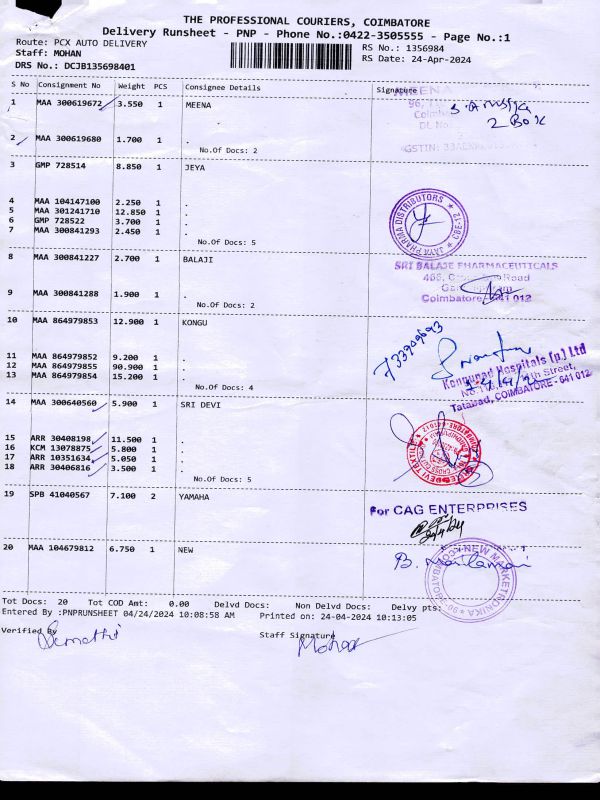 THE PROFESSIONAL COURIERS, COIMBATORE
Delivery Runsheet - PNP - Phone No.:0422-3505555 - Page No.:1
Route: PCX AUTO DELIVERY
RS No.: 1356984
Staff: MOHAN
RS Date: 24-Apr-2024
DRS No.: DCJB135698401
S No Consignment No Weight PCS Consignee Details Signature
1 MAA 300619672 3.550 1 MEENA
2 Box
2 MAA 300619680 1.700 1 .
No.Of Docs: 2
3 GMP 728514 8.850 1 JEYA
4 MAA 104147100 2.250 1 .
5 MAA 301241710 12.850 1 .
6 GMP 728522 3.700 1 .
7 MAA 300841293 2.450 1 .
No.Of Docs: 5
JAYA PHARMA DISTRIBUTORS
8 MAA 300841227 2.700 1 BALAJI
SRI BALAJE PHARMACEUTICALS
Road
9 MAA 300841288 1.900 1 .
Coimbatore - 641 012
No.Of Docs: 2
10 MAA 864979853 12.900 1 KONGU
11 MAA 864979852 9.200 1 .
12 MAA 864979855 90.900 1 .
13 MAA 864979854 15.200 1 .
No.Of Docs: 4
Kongunad Hospitals (p.) Ltd
Street,
Tatabad, COIMBATORE - 641 012
14 MAA 300640560 5.900 1 SRI DEVI
15 ARR 30408198 11.500 1 .
16 KCM 13078875 5.800 1 .
17 ARR 10351634 5.050 1 .
18 ARR 30406816 3.500 1 .
No.Of Docs: 5
19 SPB 41040567 7.100 2 YAMAHA
For CAG ENTERPRISES
20 MAA 104679812 6.750 1 NEW
NEW MARKETRONIKA
Tot Docs: 20 Tot COD Amt: 0.00 Delvd Docs: Non Delvd Docs: Delvy pts:
Entered By :PNPRUNSHEET 04/24/2024 10:08:58 AM Printed on: 24-04-2024 10:13:05
Verified By
Staff Signature
Mohan